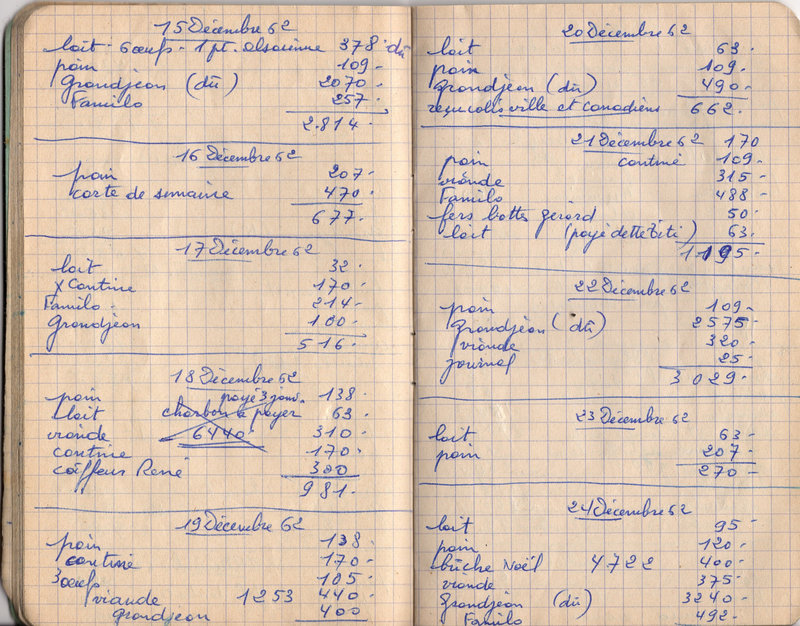 15 Décembre 62
lait - 6 œufs - 1 pt. alsacienne 378 - dû
pain 109 -
grandjean (dû) 2070
Familo 257 -
2.814 -
16 Décembre 62
pain 207 -
carte de semaine 470 -
677 -
17 Décembre 62
lait 32 -
x Cantine 170 -
Familo - 214 -
grandjean 100 -
516 -
18 Décembre 62
pain payé 3 jours. 138 -
Lait charbon à payer 63 -
viande 6440 310 -
cantine 170 -
coiffeur René 300
981 -
19 Décembre 62
pain 138 -
cantine 170 -
3 œufs 105 -
viande 1253 440 -
grandjean 400
20 Décembre 62
lait 63 -
pain 109 -
grandjean (dû) 490 -
reçu colis ville et canadiens 662 -
21 Décembre 62 170
pain cantine 109 -
viande 315 -
Familo 488 -
fers bottes gerard 50 -
lait (payé dette Titi) 63 -
1195 -
22 Décembre 62
pain 109 -
grandjean (dû) 2575 -
viande 320 -
journal 25 -
3029 -
23 Décembre 62
lait 63 -
pain 207 -
270 -
24 Décembre 62
lait 95 -
pain 120 -
bûche Noël 4722 400 -
viande 375 -
grandjean (dû) 3240 -
Familo 492 -